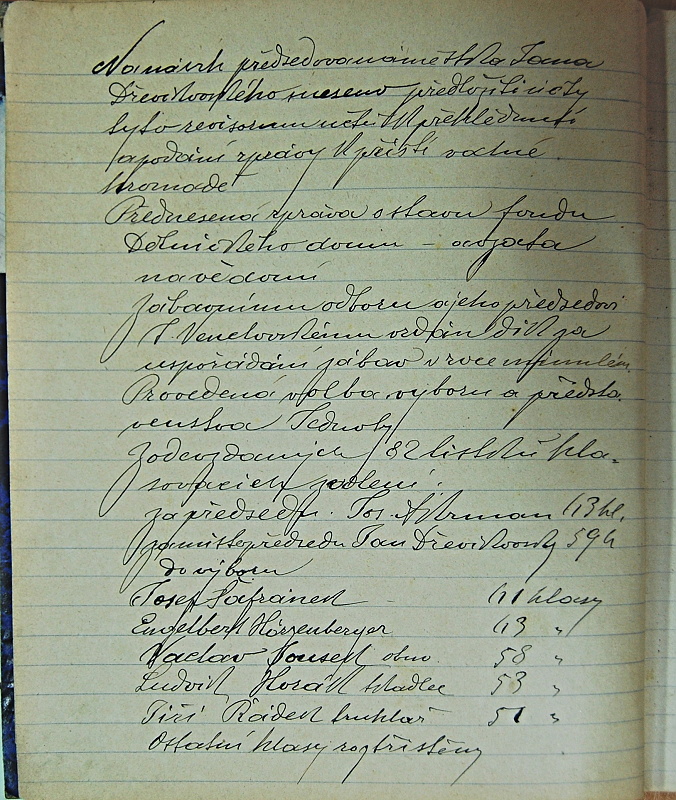 Na návrh předsedova náměstka Jana
Dřevikovského sneseno předložiti účty
tyto revisorum účtů k přehlédnutí
a podání zprávy k příští valné
hromadě
Přednesená zpráva o stavu fondu
Dělnického domu – vzata
na vědomí
Zábavnímu odboru a jeho předsedovi
vzdán dík za
uspořádání zábav v roce minulém.
Provedená volba výboru a předsta-
venstva Jednoty
Z odevzdaných 82 lístků hla-
sovacích zvoleni:
za předsedu. Jos. 43 hl.
za místopředsedu Jan Dřevikovský 59 h
do výboru
Josef Šafránek 41 hlasy
Engelbert 43 "
Václav Soused obuv. 58 "
Ludvík Horák tkadlec 53 "
Jiří Rádek truhlář 51 "
Ostatní hlasy roztříštěny